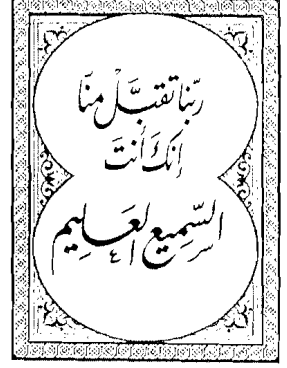 ربّنا تقبَّل منّا
إنكَ أنتَ
السّميع العَليم